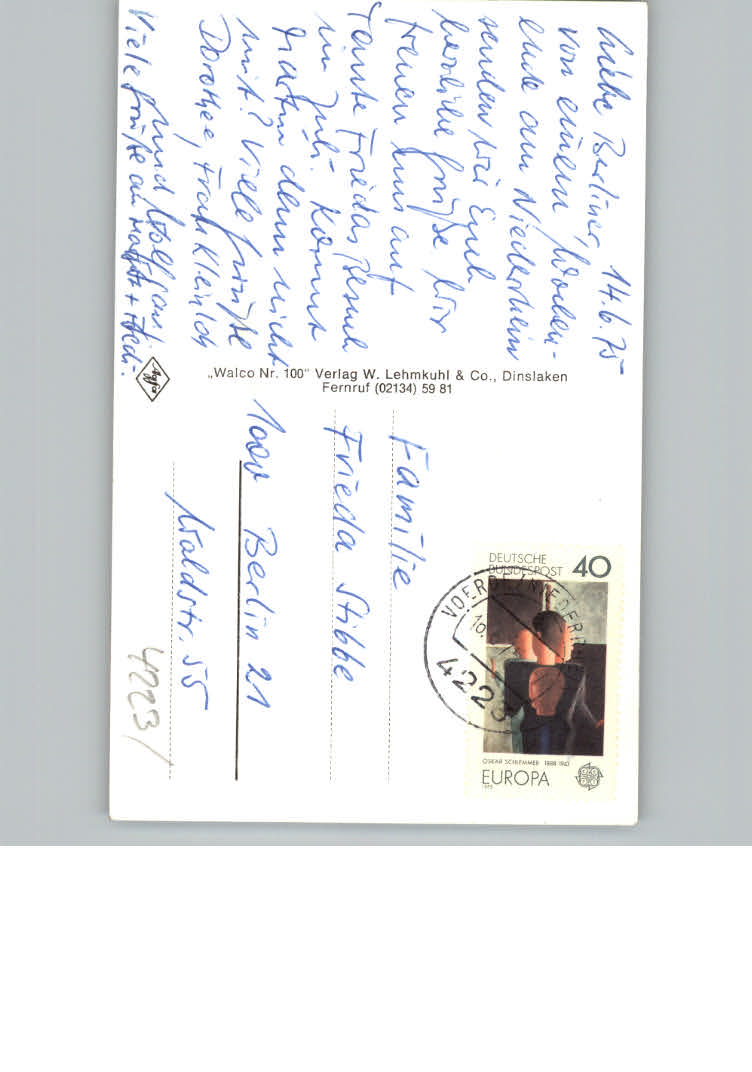 14.6.75
Liebe Berliner,
von einem Wochen-
ende am Niederrhein
senden wir Euch
herzliche Grüße. Wir
freuen uns auf
Tante Friedas Besuch
im Juli. Kommt
Martin denn nicht
mit? Viele Grüße
Dorothee, Frau Kleinloh
und Wolfgang
Viele Grüße an + Hedi.
Agfa
„Walco Nr. 100" Verlag W. Lehmkuhl & Co., Dinslaken
Fernruf (02134) 59 81
DEUTSCHE
BUNDESPOST 40
VOERDE (NIEDERRHEIN)
4223
OSKAR SCHLEMMER 1888-1943
EUROPA
1975
Familie
Frieda Stibbe
1000 Berlin 21
Waldstr. 55
4223/